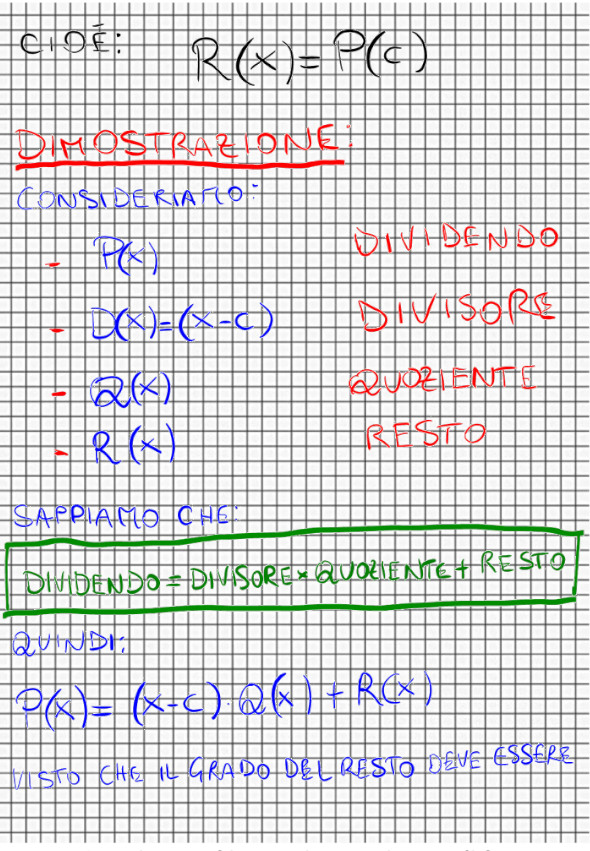 CIOÈ: R(x)=P(c)
DIMOSTRAZIONE:
CONSIDERIAMO:
- P(x) DIVIDENDO
- D(x)=(x-c) DIVISORE
- Q(x) QUOZIENTE
- R(x) RESTO
SAPPIAMO CHE:
DIVIDENDO = DIVISORE × QUOZIENTE + RESTO
QUINDI:
P(x)= (x-c)·Q(x)+R(x)
VISTO CHE IL GRADO DEL RESTO DEVE ESSERE